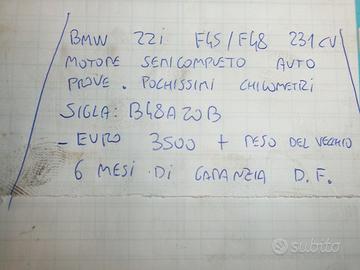 BMW 22i F45/F48 231CV
MOTORE SEMICOMPLETO AUTO
PROVE. POCHISSIMI CHILOMETRI
SIGLA: B48A20B
- EURO 3500 + RESO DEL VECCHIO
6 MESI DI GARANZIA D.F.
subito